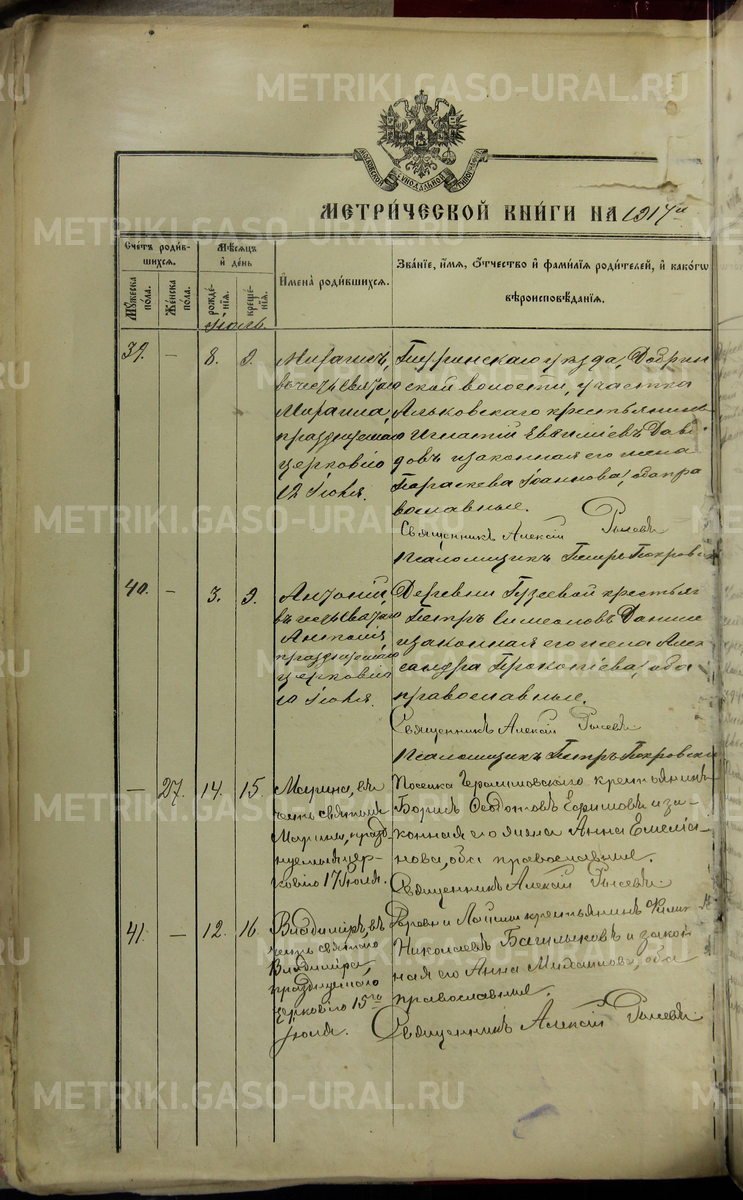 METRIKI.GASO-URAL.RU
МОСКОВСКОЙ СѴНОДАЛЬНОЙ ТИПОГРАФІИ
МЕТРИ́ЧЕСКОЙ КНИ́ГИ НА 1917 и
Сче́тъ роди́в-
шихся.
Мꙋ́жеска
по́ла.
Же́нска
по́ла.
Мѣ́сяцъ
и҆ де́нь
рожде́-
нїѧ.
креще́-
нїѧ.
И҆мена̀ роди́вшихся.
Зва́нїе, и҆́мѧ, ѻ҆́тчество и҆ фами́лїѧ роди́телей, и҆ како́гѡ
вѣроисповѣ́данїѧ.
Іюль.
39. — 8. 9.
въ честь святаго
празднуемаго
церковію
12 Іюля.
уѣзда,
ской волости, участка
крестьянинъ
Игнатій Евѳиміевъ Давы
довъ и законная его жена
Параскева Іоаннова, оба пра
вославные.
Священникъ Алексій
Псаломщикъ Петръ Покровскій
40. — 3. 9.
Антоній,
въ честь святаго
Антонія,
празднуемаго
церковію
10 Іюля.
Деревни крестьян
Петръ Симеоновъ
и законная его жена Алек
сандра Прокопіева, оба
православные.
Священникъ Алексій
Псаломщикъ Петръ Покровскій
— 27. 14. 15.
Марина, въ
честь святыя
Марины, празд
нуемыя цер-
ковію 17 Іюля.
Поселка крестьянинъ
Борисъ Ѳедотовъ Ефимовъ и за-
конная его жена Анна Емелiа-
нова, оба православные.
Священникъ Алексій
41. — 12. 16.
Владиміръ, въ
честь святаго
Владиміра,
празднуемаго
церковію 15го
Іюля.
крестьянинъ
Николаевъ и закон
ная его Анна Михаилова, оба
православные.
Священникъ Алексій